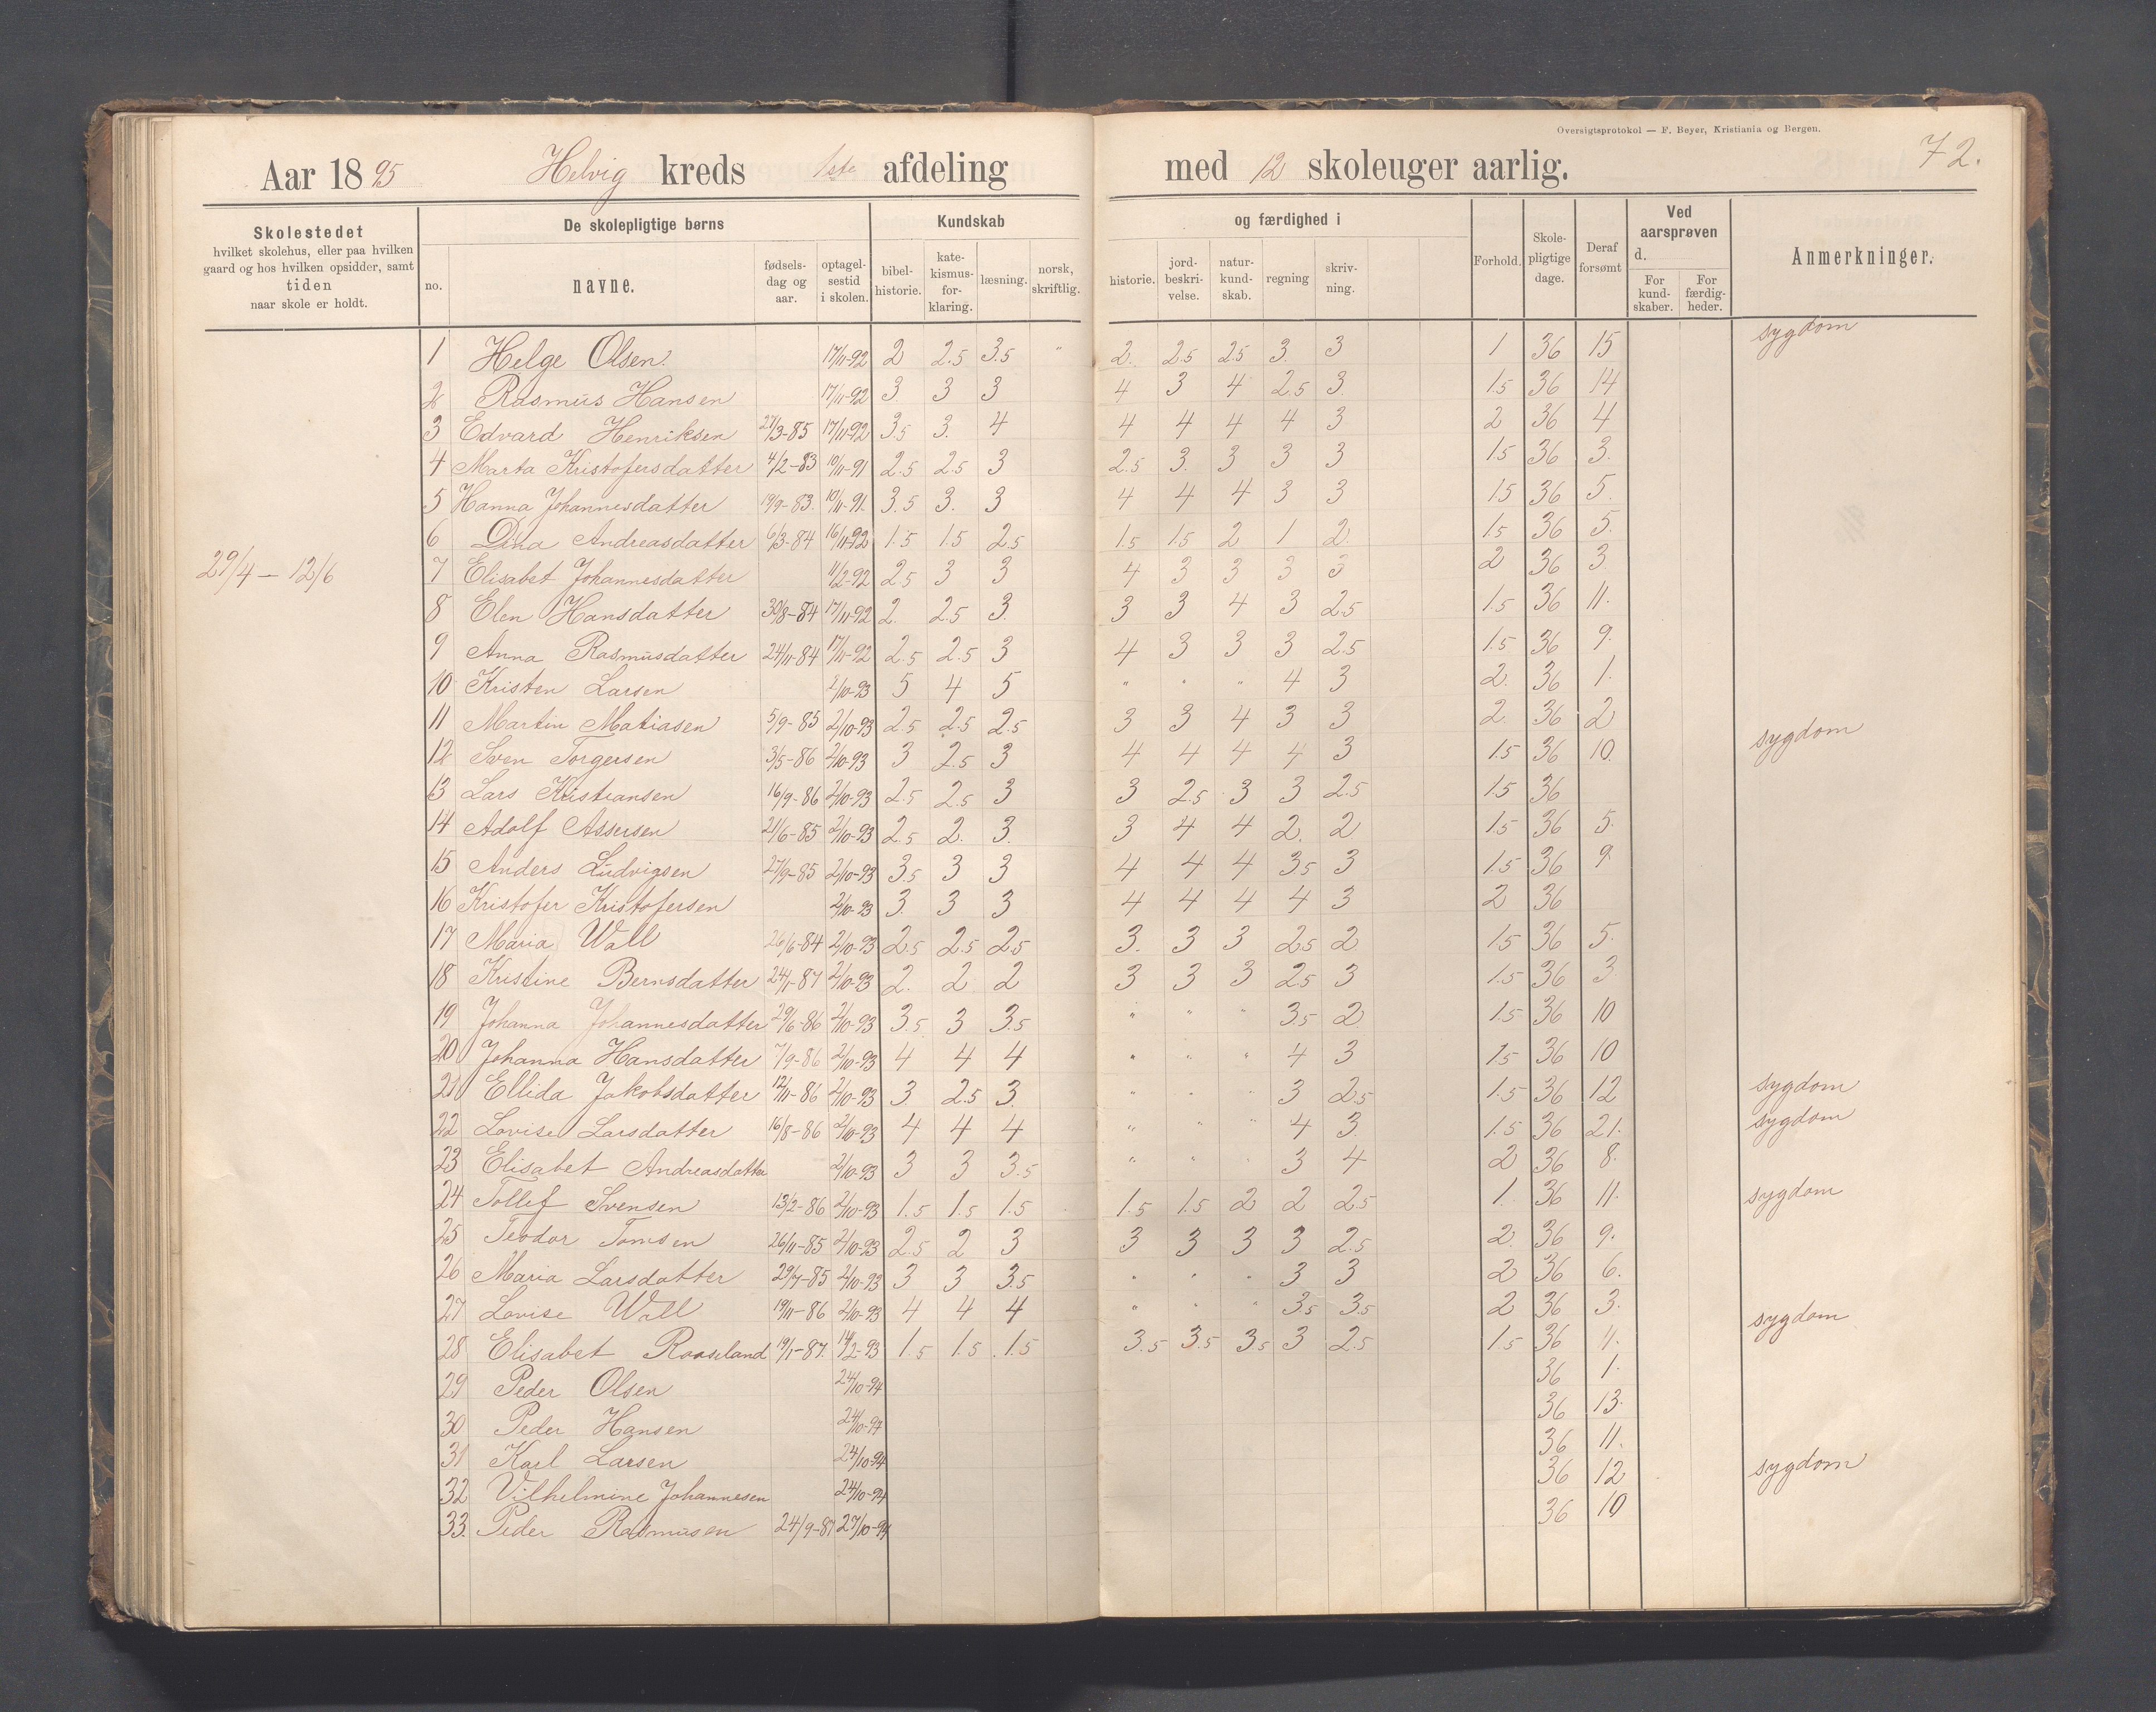 Oversigtsprotokol — F. Beyer, Kristiania og Bergen.
72.
Aar 1895 Helvig kreds 1ste afdeling med 12 skoleuger aarlig.
Skolestedet hvilket skolehus, eller paa hvilken gaard og hos hvilken opsidder, samt tiden naar skole er holdt.
De skolepligtige børns
no. navne. fødselsdag og aar. optagelsestid i skolen.
Kundskab og færdighed i
bibelhistorie. katekismusforklaring. læsning. norsk, skriftlig. historie. jordbeskrivelse. naturkundskab. regning skrivning.
Forhold. Skolepligtige dage. Deraf forsømt
Ved aarsprøven d. For kundskaber. For færdigheder.
Anmerkninger.
29/4 – 12/6
1 Helge Olsen. 17/11-92 2 2.5 3.5 " 2. 2.5 2.5 3. 3 1 36 15 sygdom
2 Rasmus Hansen 17/11-92 3. 3 3 4 3 4 2.5 3. 1.5 36 14
3 Edvard Henriksen 27/3-85 17/11-92 3.5 3. 4 4 4 4 4 3 2 36 4
4 Marta Kristofersdatter 4/2-83 10/11-91 2.5 2.5 3 2.5 3. 3 3 3 1.5 36 3.
5 Hanna Johannesdatter 19/9-83. 10/11-91. 3.5 3. 3 4 4 4 3 3 1.5 36 5.
6 Dina Andreasdatter 6/3-84 16/11-92 1.5 1.5 2.5 1.5 1.5 2 1 2. 1.5 36 5.
7 Elisabet Johannesdatter 11/2-92 2.5 3 3 4 3 3 3 3 2 36 3
8 Elen Hansdatter 30/8-84 17/11-92 2. 2.5 3. 3 3 4 3 2.5 1.5 36 11.
9 Anna Rasmusdatter 24/11-84 17/11-92 2.5 2.5 3 4 3 3 3 2.5 1.5 36 9.
10 Kristen Larsen 2/10-93 5 4 5 " " " 4 3 2. 36 1.
11 Martin Matiasen 5/9-85 2/10-93 2.5 2.5 2.5 3 3 4 3 3 2. 36 2
12 Sven Torgersen 3/5-86 2/10-93 3 2.5 3 4 4 4 4 3 1.5 36 10. sygdom
13 Lars Kristiansen 16/9-86 2/10-93 2.5 2.5 3 3 2.5 3 3 2.5 1.5 36
14 Adolf Assersen 21/6-85 2/10-93 2.5 2. 3. 3 4 4 2. 2 1.5 36 5.
15 Anders Ludvigsen 27/9-85 2/10-93 3.5 3 3 4 4 4 3.5 3 1.5 36 9.
16 Kristofer Kristofersen 2/10-93 3. 3 3 4 4 4 4 3 2 36
17 Maria Wall 26/6-84 2/10-93 2.5 2.5 2.5 3. 3 3 2.5 2 1.5 36 5.
18 Kristine Bernsdatter 24/1-87 2/10-93 2. 2 2 3 3 3 2.5 3 1.5 36 3.
19 Johanna Johannesdatter 29/6-86 2/10-93 3.5 3 3.5 " " " 3.5 2 1.5 36 10
20 Johanna Hansdatter 7/9-86 2/10-93 4 4 4 " " " 4 3 1.5 36 10
21 Ellida Jakobsdatter 12/11-86 2/10-93 3. 2.5 3. " " " 3 2.5 1.5 36 12 sygdom
22 Lovise Larsdatter 16/8-86 2/10-93 4 4 4 " " " 4 3. 1.5 36 21. sygdom
23 Elisabet Andreasdatter 2/10-93 3 3 3.5 " " " 3 4 2 36 8.
24 Tollef Svensen 13/2-86 2/10-93 1.5 1.5 1.5 1.5 1.5 2 2 2.5 1. 36 11. sygdom
25 Teodor Tomsen 26/11-85 2/10-93 2.5 2 3 3 3 3 3 2.5 2. 36 9.
26 Maria Larsdatter 29/7-85 2/10-93 3 3 3.5 " " " 3 3 2 36 6.
27 Lovise Wall 19/11-86 2/10-93 4 4 4 " " " 3.5 3.5 2 36 3.
28 Elisabet Roaseland 19/1-87. 14/2-93 1.5 1.5 1.5 3.5 3.5 3.5 3 2.5 1.5 36 11. sygdom
29 Peder Olsen 24/10-94 36 1.
30 Peder Hansen 24/10-94 36 13.
31 Karl Larsen 24/10-94 36 11.
32 Vilhelmine Johannesen 24/10-94 36 12 sygdom
33. Peder Rasmusen 24/9-87 27/10-94 36 10